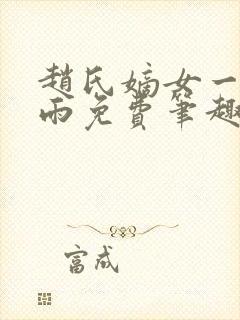 趙氏嫡女一
雨免費筆趣
富成